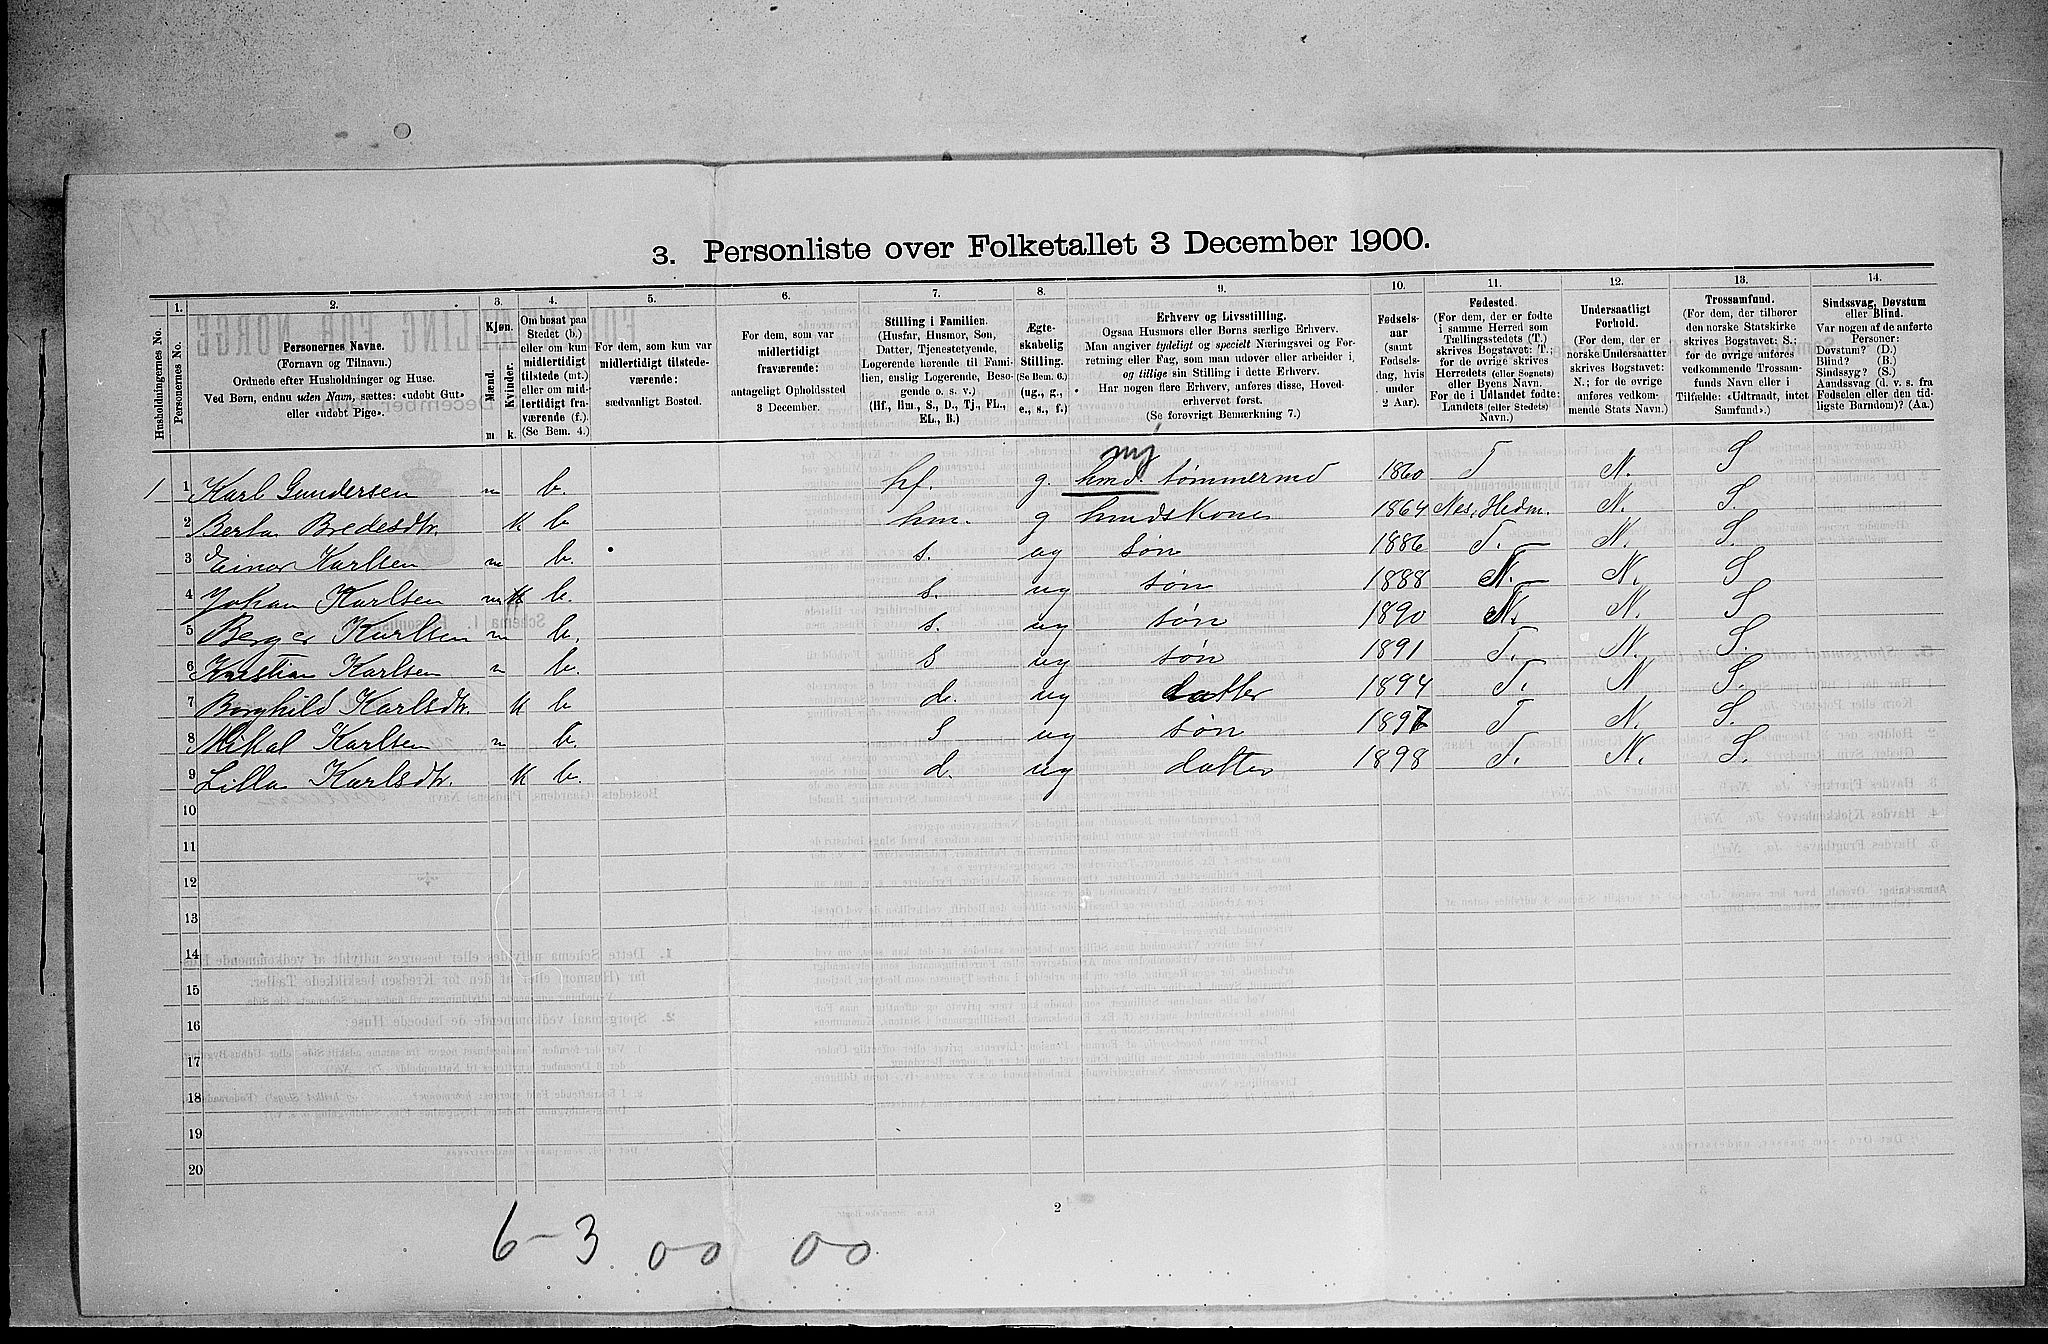 3. Personliste over Folketallet 3 December 1900.
Husholdningernes No.
1.
Personernes No.
2.
Personernes Navne.
(Fornavn og Tilnavn.)
Ordnede efter Husholdninger og Huse.
Ved Børn, endnu uden Navn, sættes: «udøbt Gut»
eller «udøbt Pige».
3.
Kjøn.
Mænd.
Kvinder.
m k.
4.
Om bosat paa
Stedet (b.)
eller om kun
midlertidigt
tilstede (mt.)
eller om mid-
lertidigt fra-
værende (f.).
(Se Bem. 4.)
5.
For dem, som kun var
midlertidigt tilstede-
værende:
sædvanligt Bosted.
6.
For dem, som var
midlertidigt
fraværende:
antageligt Opholdssted
3 December.
7.
Stilling i Familien.
(Husfar, Husmor, Søn,
Datter, Tjenestetyende,
Logerende hørende til Fami-
lien, enslig Logerende, Besø-
gende o. s. v.)
(Hf., Hm., S., D., Tj., FL.,
EL., B.)
8.
Ægte-
skabelig
Stilling.
(Se Bem. 6.)
(ug., g.,
e., s., f.)
9.
Erhverv og Livsstilling.
Ogsaa Husmors eller Børns særlige Erhverv.
Man angiver tydeligt og specielt Næringsvei og For-
retning eller Fag, som man udøver eller arbeider i,
og tillige sin Stilling i dette Erhverv.
Har nogen flere Erhverv, anføres disse, Hoved-
erhvervet først.
(Se forøvrigt Bemerkning 7.)
10.
Fødsels-
aar
(samt
Fødsels-
dag, hvis
under
2 Aar).
11.
Fødested.
(For dem, der er fødte
i samme Herred som
Tællingsstedets (T.)
skrives Bogstavet: T.;
for de øvrige skrives
Herredets (eller Sognets)
eller Byens Navn.
For de i Udlandet fødte:
Landets (eller Stedets)
Navn.)
12.
Undersaatligt
Forhold.
(For dem, der er
norske Undersaatter
skrives Bogstavet:
N.; for de øvrige
anføres vedkom-
mende Stats Navn.)
13.
Trossamfund.
(For dem, der tilhører
den norske Statskirke
skrives Bogstavet: S.;
for de øvrige anføres
vedkommende Trossam-
funds Navn eller i
Tilfælde: «Udtraadt, intet
Samfund».)
14.
Sindssvag, Døvstum
eller Blind.
Var nogen af de anførte
Personer:
Døvstum? (D.)
Blind? (B.)
Sindssyg? (S.)
Aandssvag (d. v. s. fra
Fødselen eller den tid-
ligste Barndom)? (Aa.)
mj
1 1 Karl Gundersen m b. hf. g. hmd. tømmermd 1860 T N. S
2 Berta Bredesdtr. k b hm. g hmdskone 1864 Nes, Hedm. N. S.
3 Einar Karlsen m b. s. ug søn 1886 T. N. S.
4 Johan Karlsen m b. s. ug søn 1888 N. N. S
5 Berger Karlsen m b. s. ug søn 1890 N. N. S
6 Kristian Karlsen m b. S ug søn 1891 T. N. S.
7 Borghild Karlsdtr. k b d. ug datter 1894 T. N S.
8 Mikal Karlsen m b. S ug søn 1897 T N. S.
9 Lilla Karlsdtr. k b. d. ug datter 1898 T. N. S.
10
11
12
13
14
15
16
17
18
19
20
2
6-3 00 00